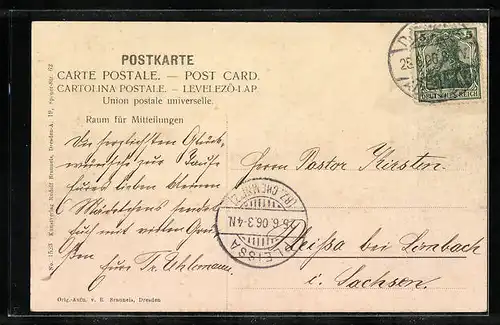 POSTKARTE
CARTE POSTALE. — POST CARD.
CARTOLINA POSTALE. — LEVELEZŐ-LAP.
Union postale universelle.
Raum für Mitteilungen
Die herzlichsten Glück-
wünsche zur Taufe
Eures lieben kleinen
Mädelchens sendet
Euch mit vielen Grü-
ßen Eure Fr. Uhlemann.
Herrn Pastor Kirsten.
Leissa bei
i. Sachsen.
5 5
REICH
LEISSA
25.6.06.3-4N.
(BZ. CHEMNITZ)
No. 1523 Kunstverlag Rudolf Brauneis, Dresden-A. 19,
Orig.-Aufn. v. R. Brauneis, Dresden